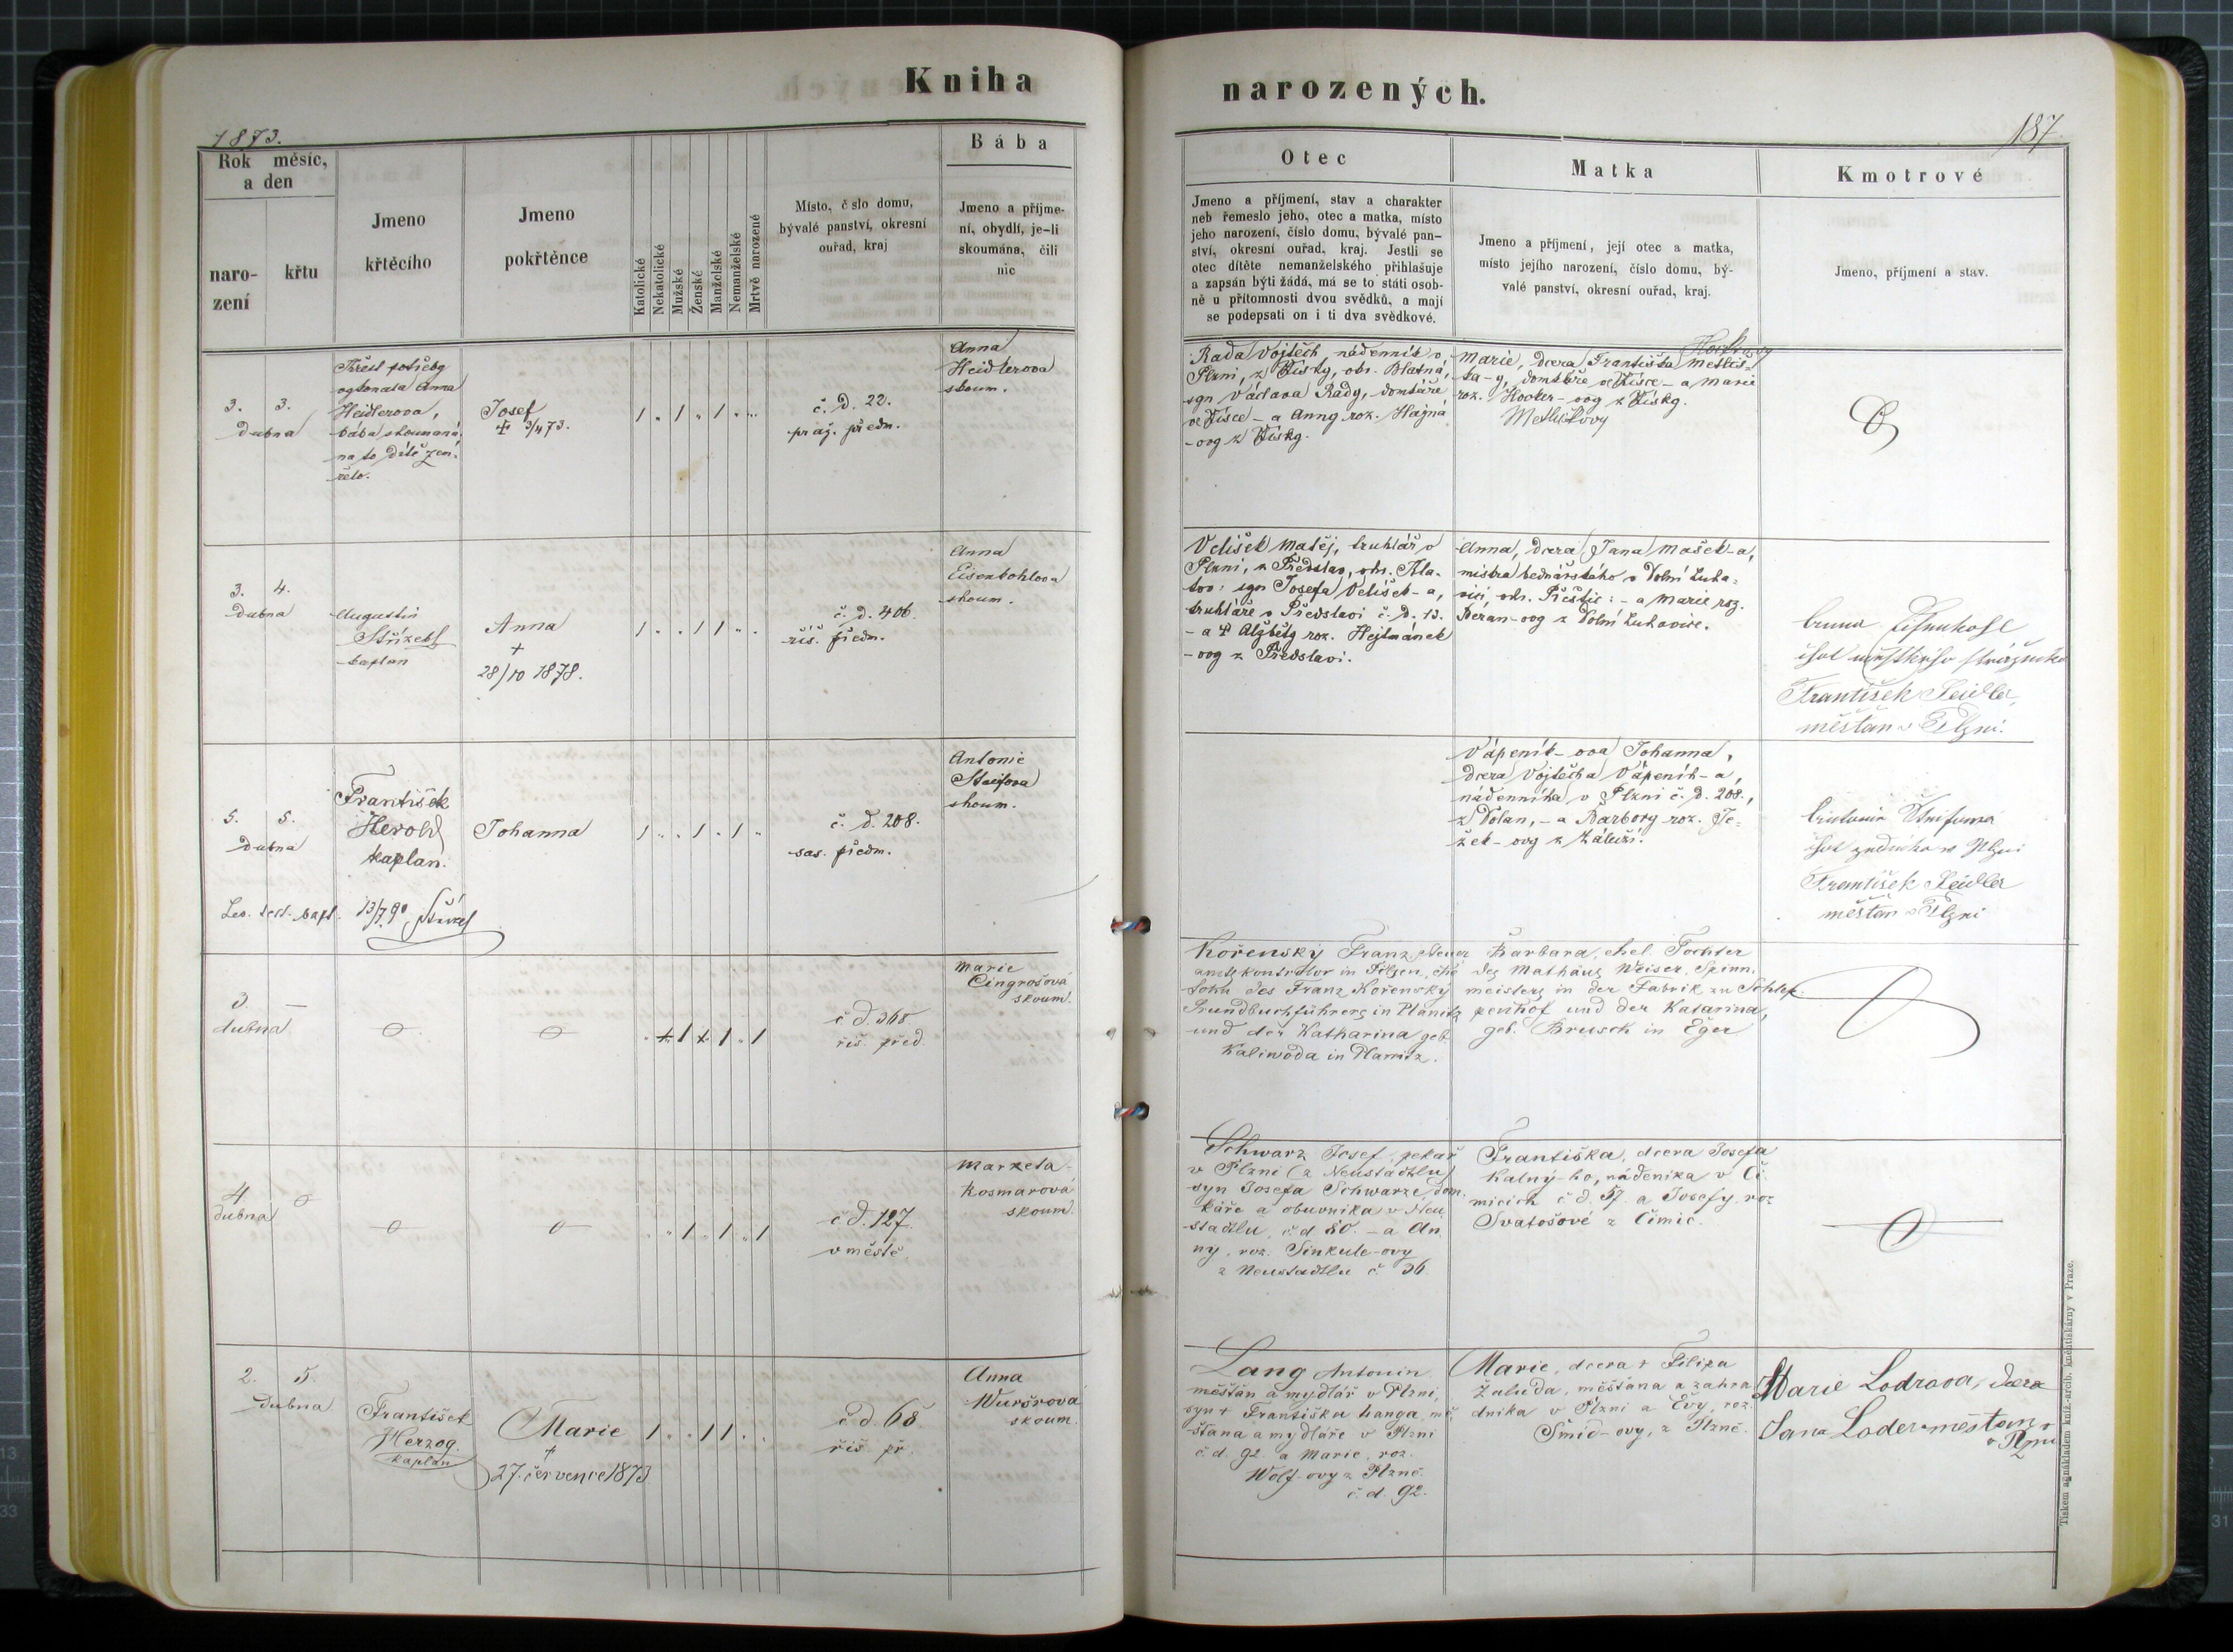 Kniha
narozených.
1873.
187
Rok měsíc,
a den
naro-
zení
křtu
Jmeno
křtěcího
Jmeno
pokřtěnce
Katolické
Nekatolické
Mužské
Ženské
Manželské
Nemanželské
Mrtvě narozené
Místo, č slo domu,
bývalé panství, okresní
ouřad, kraj
Bába
Jmeno a příjme-
ní, obydlí, je-li
skoumána, čili
nic
Otec
Jmeno a příjmení, stav a charakter
neb řemeslo jeho, otec a matka, místo
jeho narození, číslo domu, bývalé pan-
ství, okresní ouřad, kraj. Jestli se
otec dítěte nemanželského přihlašuje
a zapsán býti žádá, má se to státi osob-
ně u přítomnosti dvou svědků, a mají
se podepsati on i ti dva svědkové.
Matka
Jmeno a příjmení, její otec a matka,
místo jejího narození, číslo domu, bý-
valé panství, okresní ouřad, kraj.
Kmotrové
Jmeno, příjmení a stav.
3. 3.
Dubna
Křest potřeby
vykonala Anna
Heidlerova,
bába skoumaná,
na to dítě zem-
řelo.
Josef
+ 3/4 73.
č. d. 22.
praž. předm.
Anna
Heidlerova
skoum.
Rada Vojtěch, nádenník v
Plzni, z Vísky, okr. Blatná,
syn Václava Rady, domkáře
ve Vísce - a Anny roz. Hajná
-ovy z Vísky.
Marie, dcera Františka Metlič-
ka-y, domkáře ve Vísce - a Marie
roz. -ovy z Vísky.
3. 4.
Dubna
Augustin
Střízek
kaplan
Anna
+
28/10 1878.
č. d. 406.
říš. předm.
Anna
Eisenkohlova
skoum.
Velišek Matěj, truhlář v
Plzni, z Předslav, okr. Kla-
tov: syn Josefa Velíšek-a,
truhláře v Předslavi č. d. 13.
- a + Alžběty roz. Hejtmánek
-ovy z Předslavi.
Anna, dcera Jana Mašek-a,
mistra bednářského v Dolní Luka-
vici okr. Přeštic: - a Marie roz.
Beran-ovy z Dolní Lukavice.
František Seidler,
měšťan v Plzni.
5. 5.
Dubna
František
Herold
kaplan.
Johanna
č. d. 208.
sas. předm.
Antonie
skoum.
Vápeník-ova Johanna,
dcera Vojtěcha Vápeník-a,
nádenníka v Plzni č. d. 208.,
z Dolan, - a Barbory roz. Je-
žek-ovy z Záluží.
František Seidler
měšťan v Plzni
13/7 90
3. —
dubna
č d. 368
říš. před.
Marie
Cingrošová
skoum.
Kořenský Franz, Steuer
amtskontrolor in Pilsen, ehe
Sohn des Franz Kořenský
Grundbuchführers in Planitz
und der Katharina geb.
Kaliwoda in Planitz.
Barbara, ehel. Tochter
des Mathäus Weiser, Spinn-
meisters in der Fabrik zu Schlep-
penhof und der Katarina,
geb. Brusch in Eger
4
dubna
č d. 127.
v městě.
Marketa
Kosmarová
skoum.
Schwarz Josef, pekař
v Plzni (z Neustadtlu)
syn Josefa Schwarze, dom-
káře a obuvníka v Neu
stadtlu, č d 80. - a An
ny, roz. Sinkule-ovy
z Neustadtlu č 36
Františka, dcera Josefa
Kalný-ho, nádeníka v Či-
micích č d. 57. a Josefy roz
Svatošové z Čimic.
2. 5.
Dubna
František
Herzog
kaplan
Marie
+
27. července 1873
č. d. 68
říš. př.
Anna
Wuršrová
skoum.
Lang Antonin
měšťán a mydlář v Plzni,
syn + Františka Langa, mě-
šťana a mydláře v Plzni
č. d. 92 a Marie, roz.
Wolf-ovy z Plzně.
č. d. 92.
Marie, dcera + Filipa
Žaluda, měšťana a zahra
dníka v Plzni a Evy, roz.
Šmid-ovy, z Plzně.
Marie Lodrova, dcera
Jana Loder měšťana
v Plzni
Tiskem a nákladem kníž.-arcib. knihtiskárny v Praze.